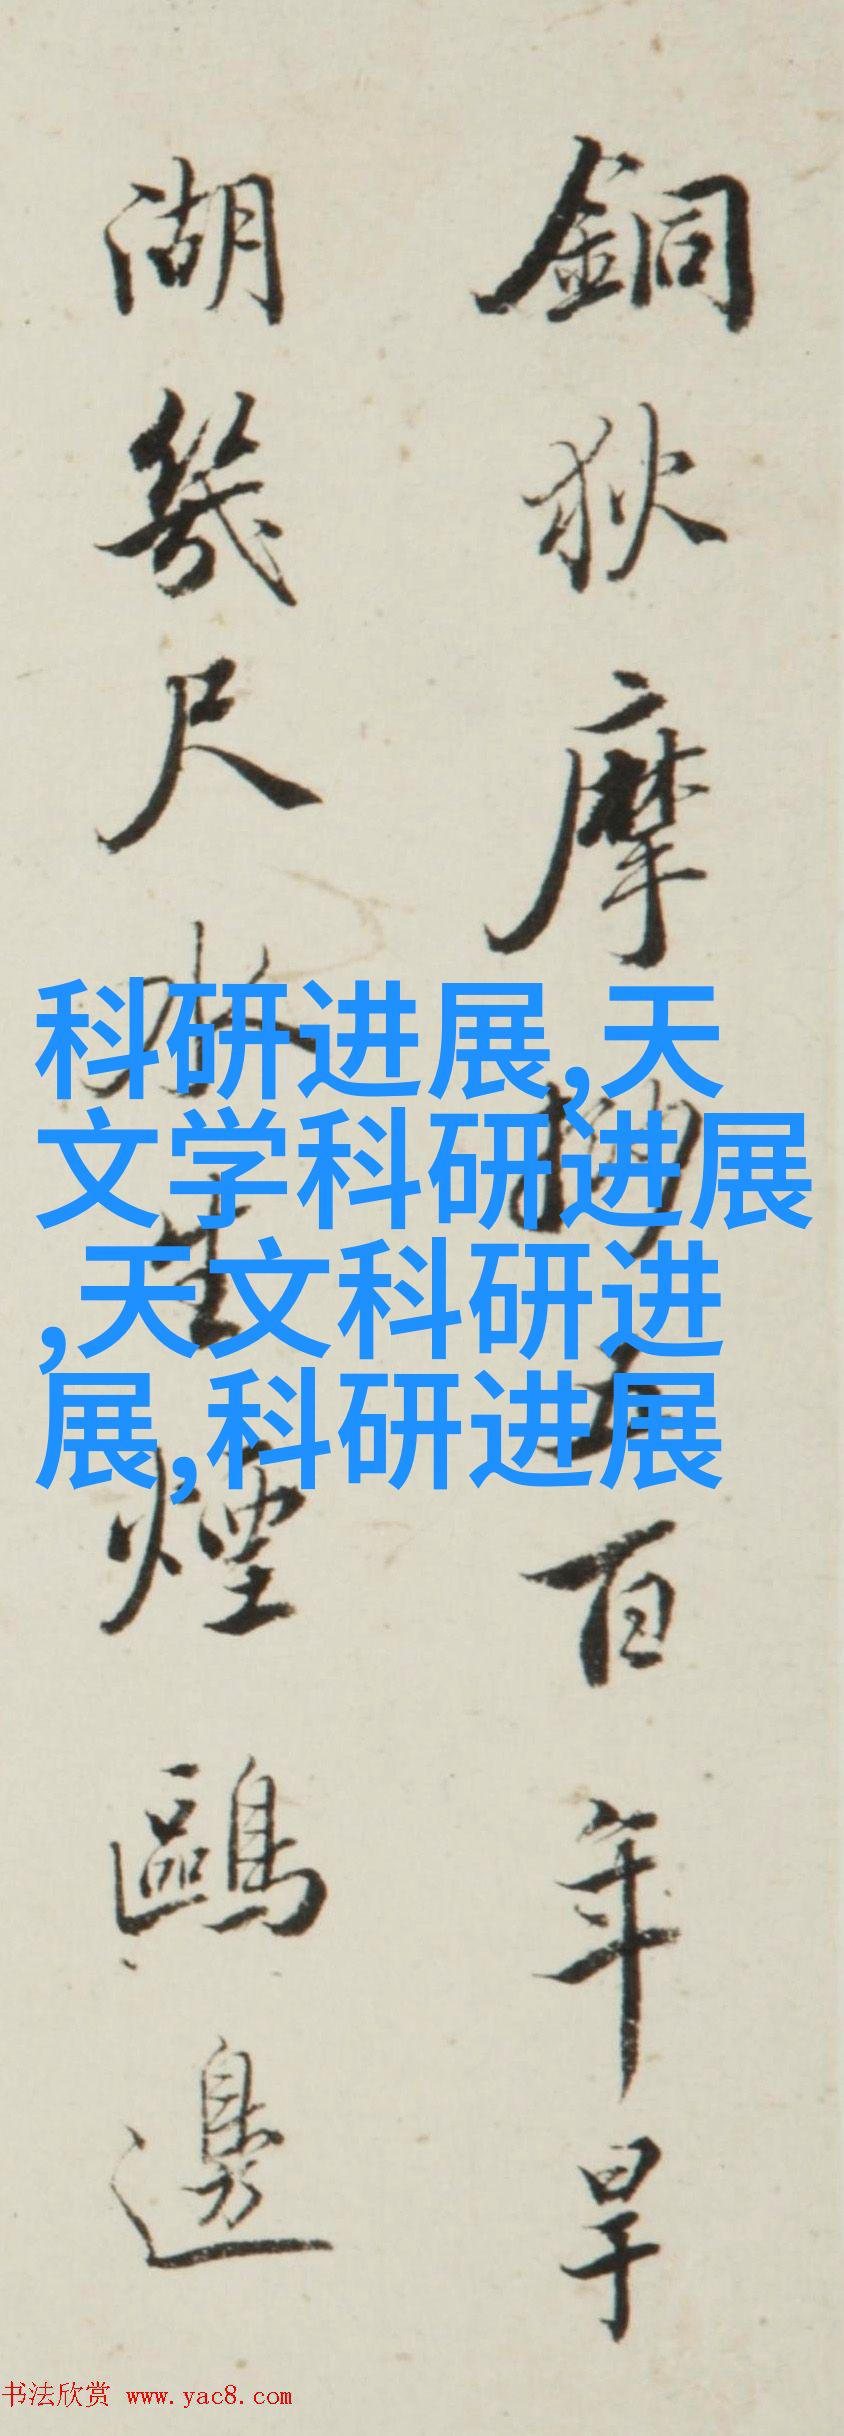 銅狄摩五百年旱
湖幾尺水生煙鷗邊
科研进展,天
文学科研进展
,天文科研进
展,科研进展
书法欣赏 www.yac8.com